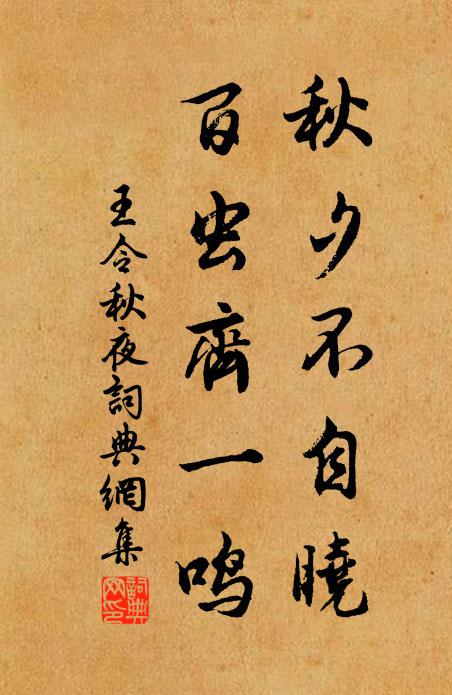 秋夕不自曉
百虫齊一鸣
王令秋夜詞典網集
詞典网印